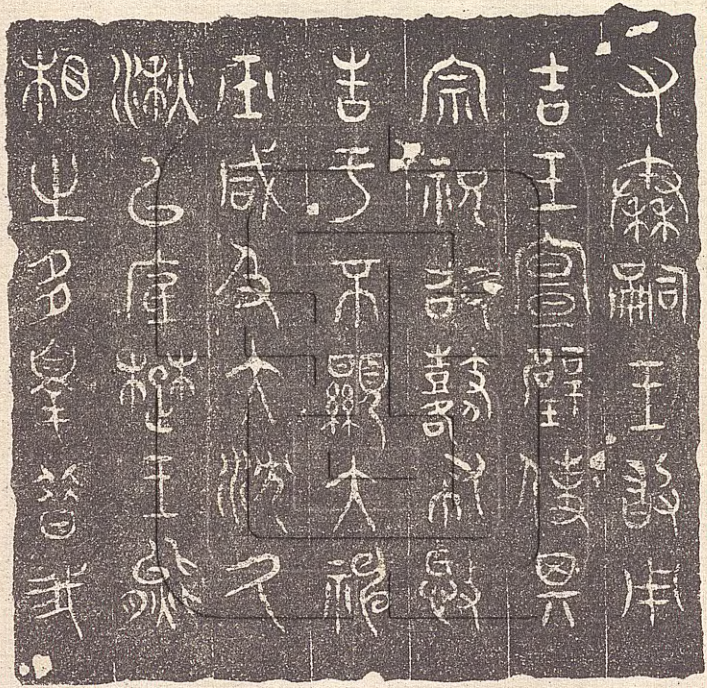 又秦嗣王敢用
吉玉宣璧使其
宗祝邵鼛布
告于不顯大神
巫咸及大沈久
湫以底楚王熊
相之多辠昔我